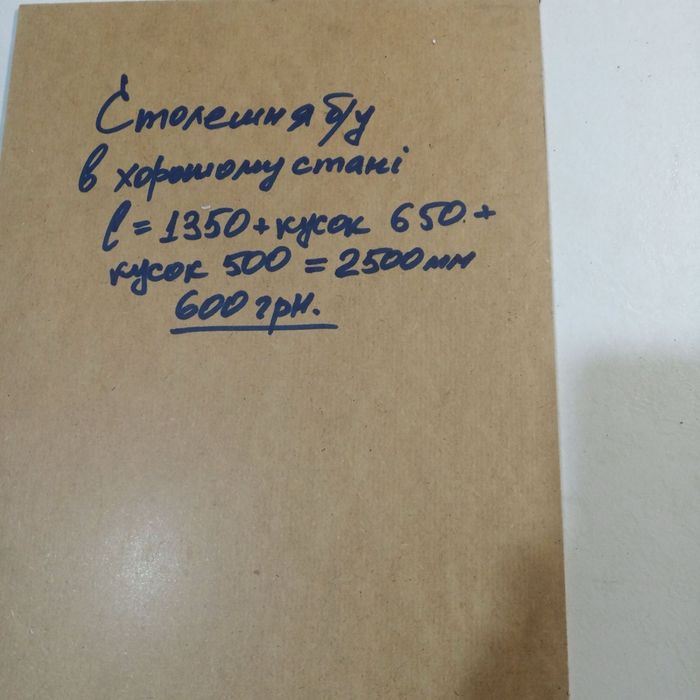 Столешня б/у
в хорошому стані
l = 1350 + кусок 650 +
кусок 500 = 2500 мм
600 грн.